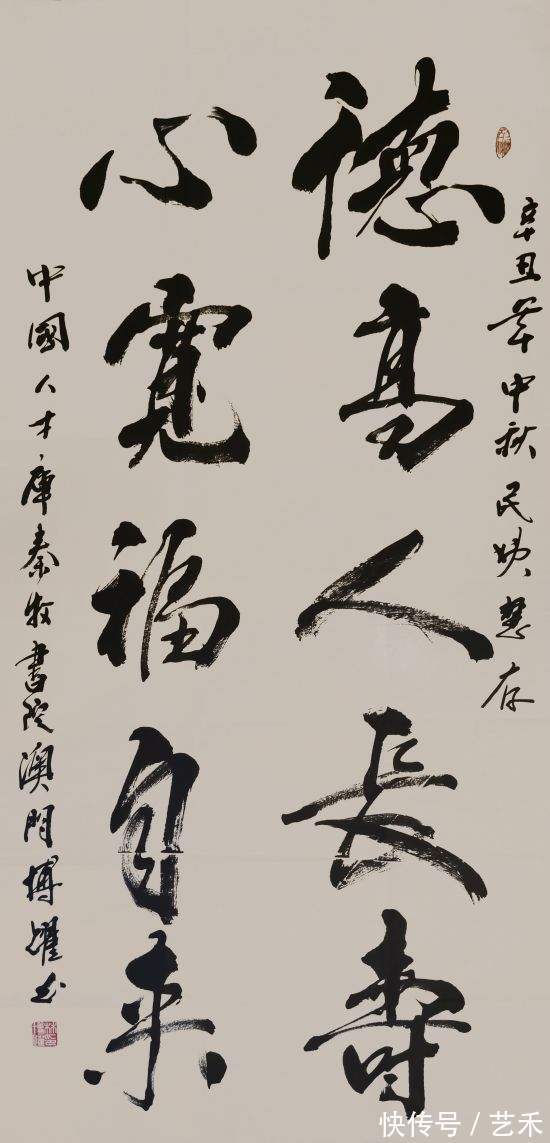 辛丑年中秋民姨慧存
德高人長壽
心寬福自来
中國人才庫秦牧書院澳門博耀书
快传号／艺禾